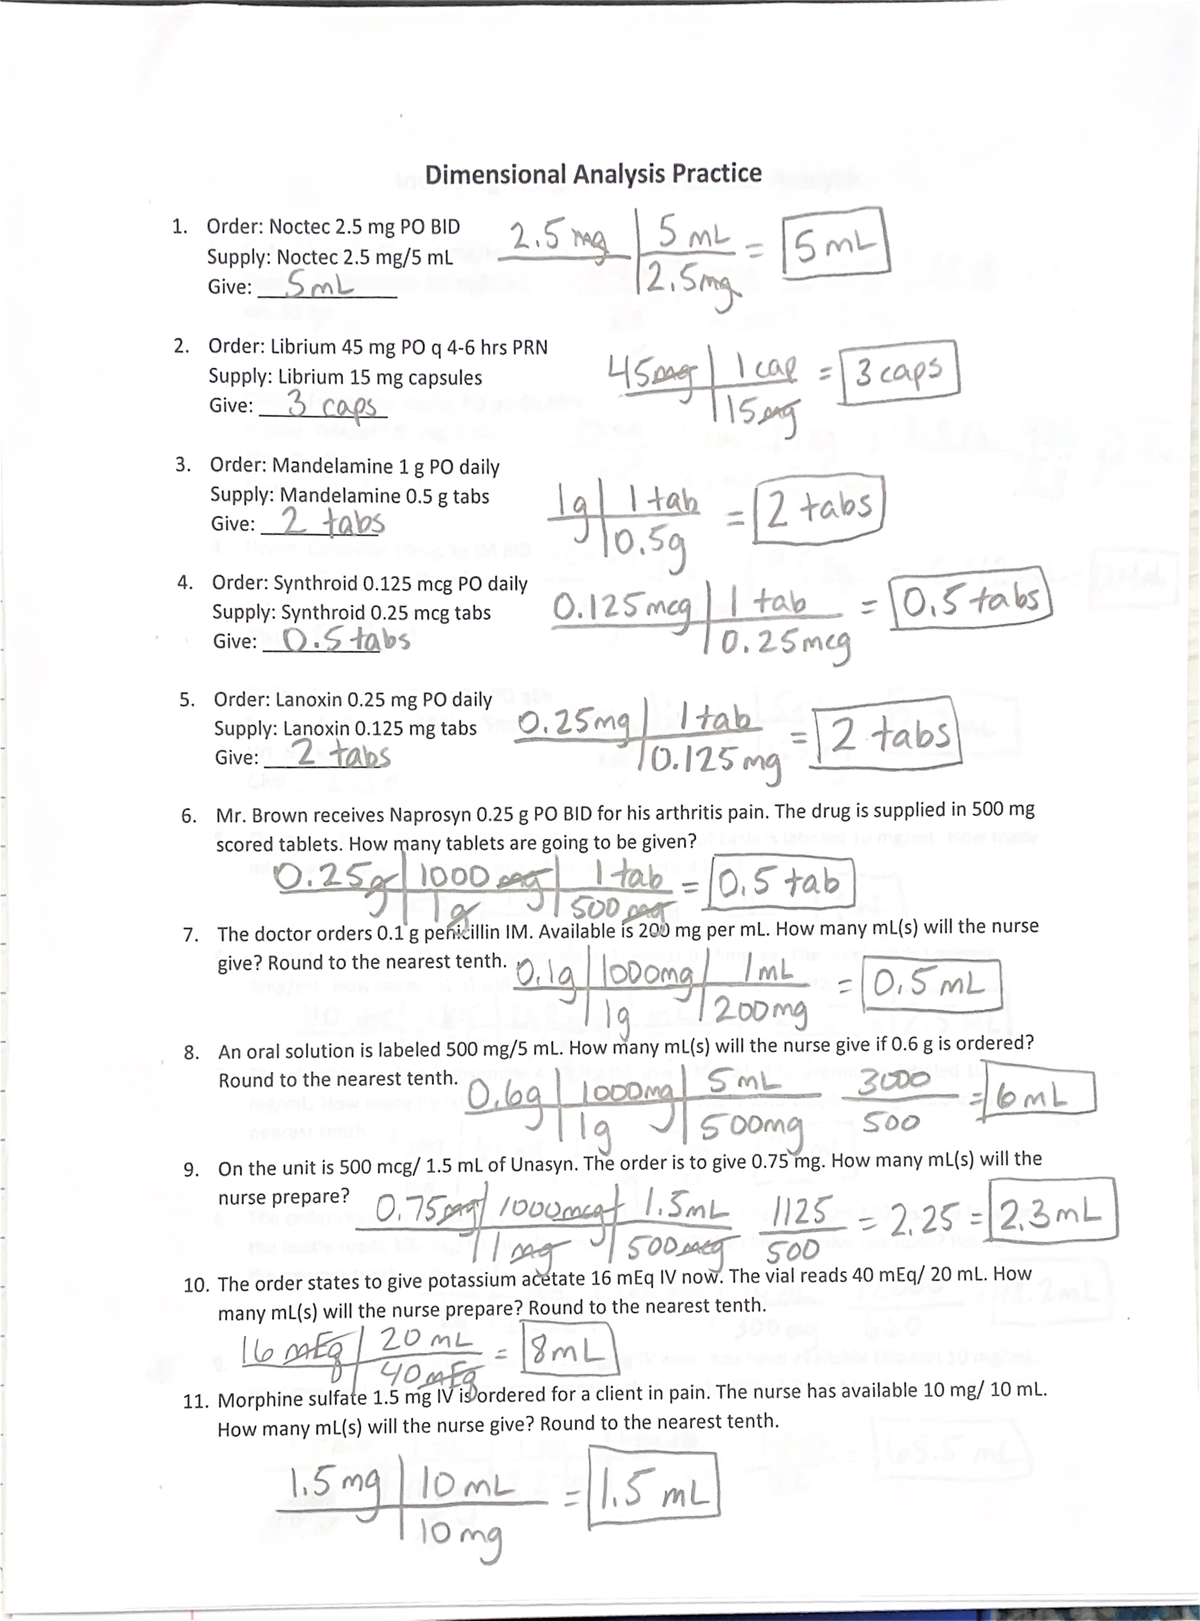 Dimensional Analysis Practice
1. Order: Noctec 2.5 mg PO BID
Supply: Noctec 2.5 mg/5 mL
Give: 5mL
2.5 mg | 5 mL = 5mL
2.5mg
2. Order: Librium 45 mg PO q 4-6 hrs PRN
Supply: Librium 15 mg capsules
Give: 3 caps
45mg | 1 cap = 3 caps
15mg
3. Order: Mandelamine 1 g PO daily
Supply: Mandelamine 0.5 g tabs
Give: 2 tabs
1g | 1 tab = 2 tabs
0.5g
4. Order: Synthroid 0.125 mcg PO daily
Supply: Synthroid 0.25 mcg tabs
Give: 0.5 tabs
0.125mcg | 1 tab = 0.5 tabs
0.25mcg
5. Order: Lanoxin 0.25 mg PO daily
Supply: Lanoxin 0.125 mg tabs
Give: 2 tabs
0.25mg | 1 tab = 2 tabs
0.125 mg
6. Mr. Brown receives Naprosyn 0.25 g PO BID for his arthritis pain. The drug is supplied in 500 mg
scored tablets. How many tablets are going to be given?
0.25g | 1000 mg | 1 tab = 0.5 tab
1g | 500 mg
7. The doctor orders 0.1 g penicillin IM. Available is 200 mg per mL. How many mL(s) will the nurse
give? Round to the nearest tenth.
0.1g | 1000mg | 1 mL = 0.5 mL
1g | 200mg
8. An oral solution is labeled 500 mg/5 mL. How many mL(s) will the nurse give if 0.6 g is ordered?
Round to the nearest tenth.
0.6g | 1000mg | 5 mL 3000 = 6 mL
1g | 500mg 500
9. On the unit is 500 mcg/ 1.5 mL of Unasyn. The order is to give 0.75 mg. How many mL(s) will the
nurse prepare?
0.75mg | 1000mcg | 1.5mL 1125 = 2.25 = 2.3 mL
1 mg | 500mcg 500
10. The order states to give potassium acetate 16 mEq IV now. The vial reads 40 mEq/ 20 mL. How
many mL(s) will the nurse prepare? Round to the nearest tenth.
16 mEq | 20 mL = 8mL
40mEq
11. Morphine sulfate 1.5 mg IV is ordered for a client in pain. The nurse has available 10 mg/ 10 mL.
How many mL(s) will the nurse give? Round to the nearest tenth.
1.5 mg | 10 mL = 1.5 mL
10 mg